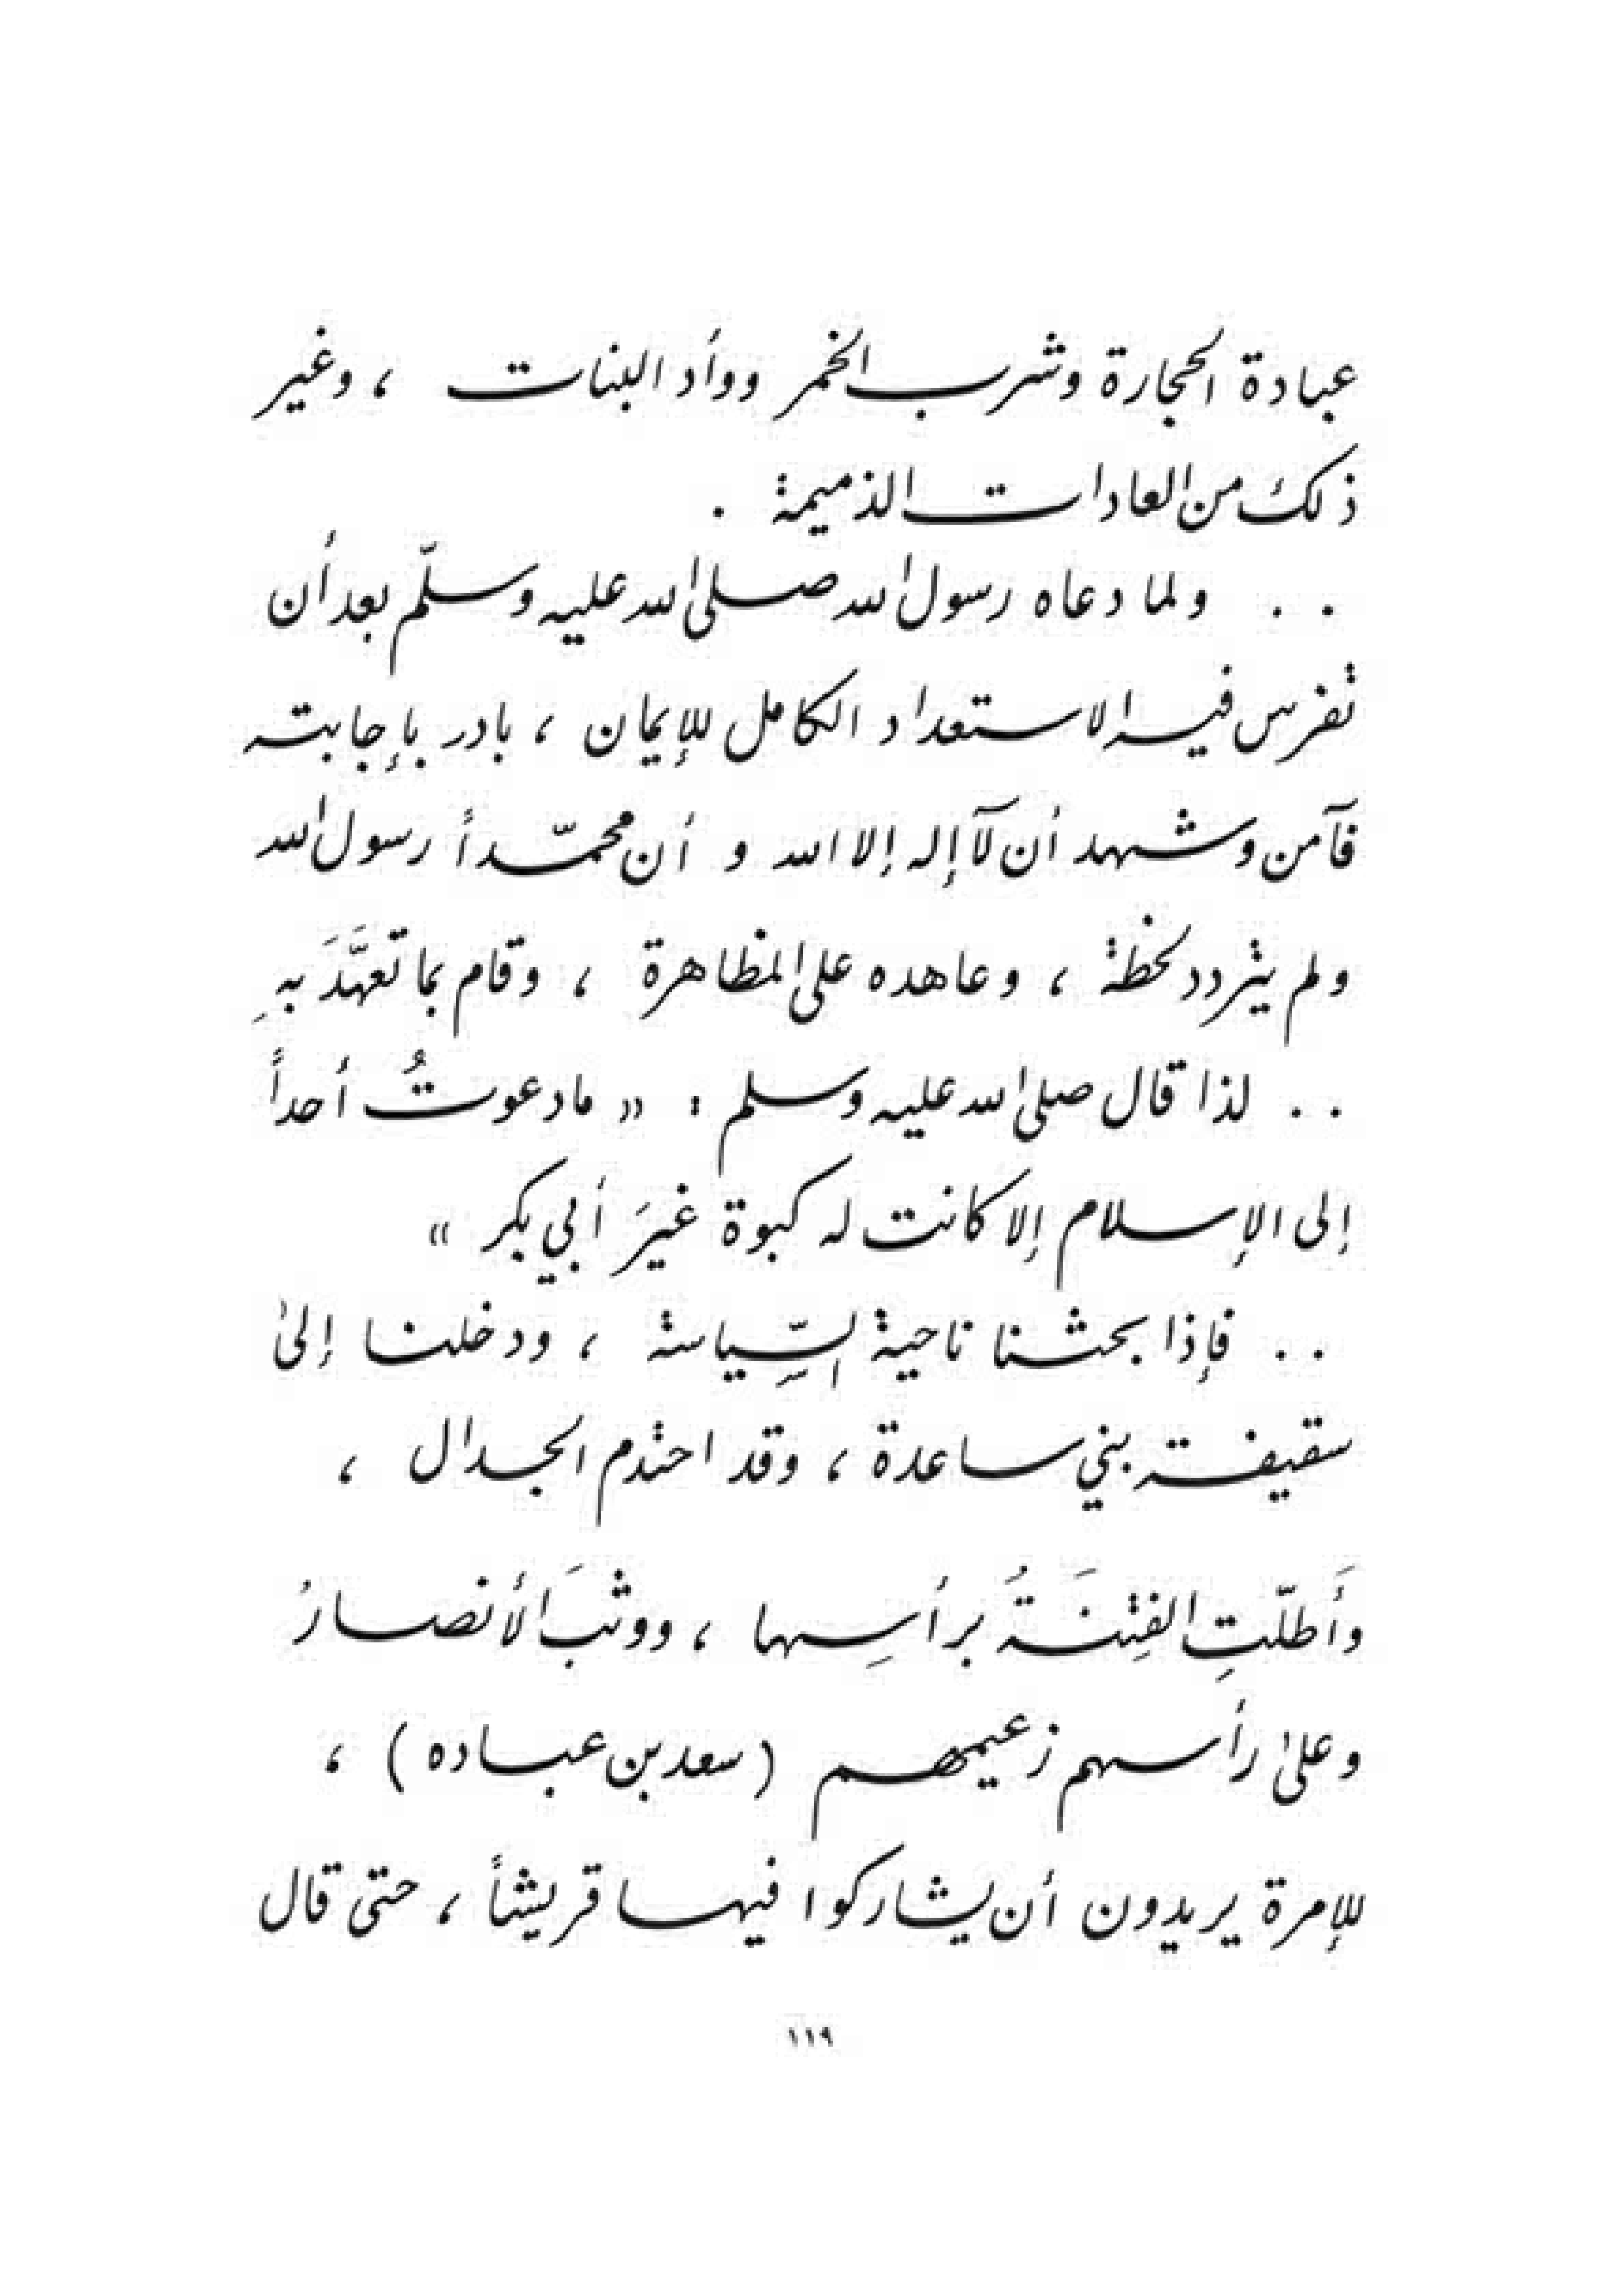 عبادة الحجارة وشرب الخمر ووأد البنات ، وغير
ذلك من العادات الذميمة .
. . ولما دعاه رسول الله صلى الله عليه وسلّم بعد أن
تفرس فيه الاستعداد الكامل للإيمان ، بادر بإجابته
فآمن وشهد أن لآ إله إلا الله و أن محمّداً رسول الله
ولم يتردد لحظة ، وعاهده على المظاهرة ، وقام بما تعهَّدَ بهِ
. . لذا قال صلى الله عليه وسلم : « مادعوتُ أحداً
إلى الإسلام إلا كانت له كبوة غيرَ أبي بكر »
. . فإذا بحثنا ناحية السِّياسة ، ودخلنا إلىٰ
سقيفة بني ساعدة ، وقد احتدم الجدال ،
وَأطلّتِ الفِتنَةُ برأسِها ، ووثبَ الأنصارُ
وعلىٰ رأسهم زعيمهم ( سعد بن عباده ) ،
للإمرة يريدون أن يشاركوا فيها قريشاً ، حتى قال
١١٩